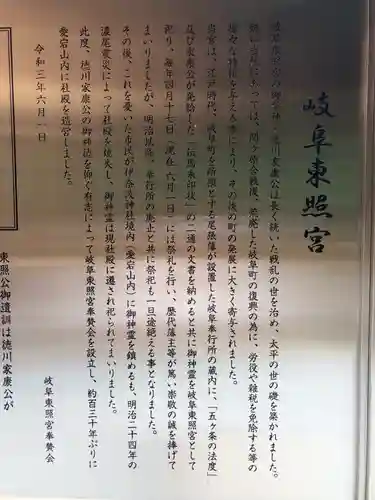 岐阜東照宮
岐阜東照宮の御祭神・徳川家康公は長く続いた戦乱の世を治め、太平の世の礎を築かれました。
に於いては、関ヶ原合戦後、荒廃した岐阜町の復興の為に、労役や雑税を免除する等の
様々な特権を与える事により、その後の町の発展に大きく寄与されました。
当宮は、江戸時代、岐阜町を所領とする尾張藩が設置した岐阜奉行所の蔵内に、「五ヶ条の法度」
及び家康公が発給した「伝馬朱印状」の二通の文書を納めると共に御神霊を岐阜東照宮として
祀り、毎年四月十七日（現在 六月一日）には祭礼を行い、歴代藩主等が篤い崇敬の誠を捧げて
まいりましたが、明治以降、奉行所の廃止と共に祭祀も一旦途絶える事となりました。
その後、これを憂いた市民が伊奈波神社境内（愛宕山内）に御神霊を鎮めるも、明治二十四年の
濃尾震災によって社殿を焼失し、御神霊は現社殿に遷され祀られてまいりました。
此度、徳川家康公の御神徳を仰ぐ有志によって岐阜東照宮奉賛会を設立し、約百三十年ぶりに
愛宕山内に社殿を造営しました。
令和三年六月一日
岐阜東照宮奉賛会
東照公御遺訓は徳川家康公が